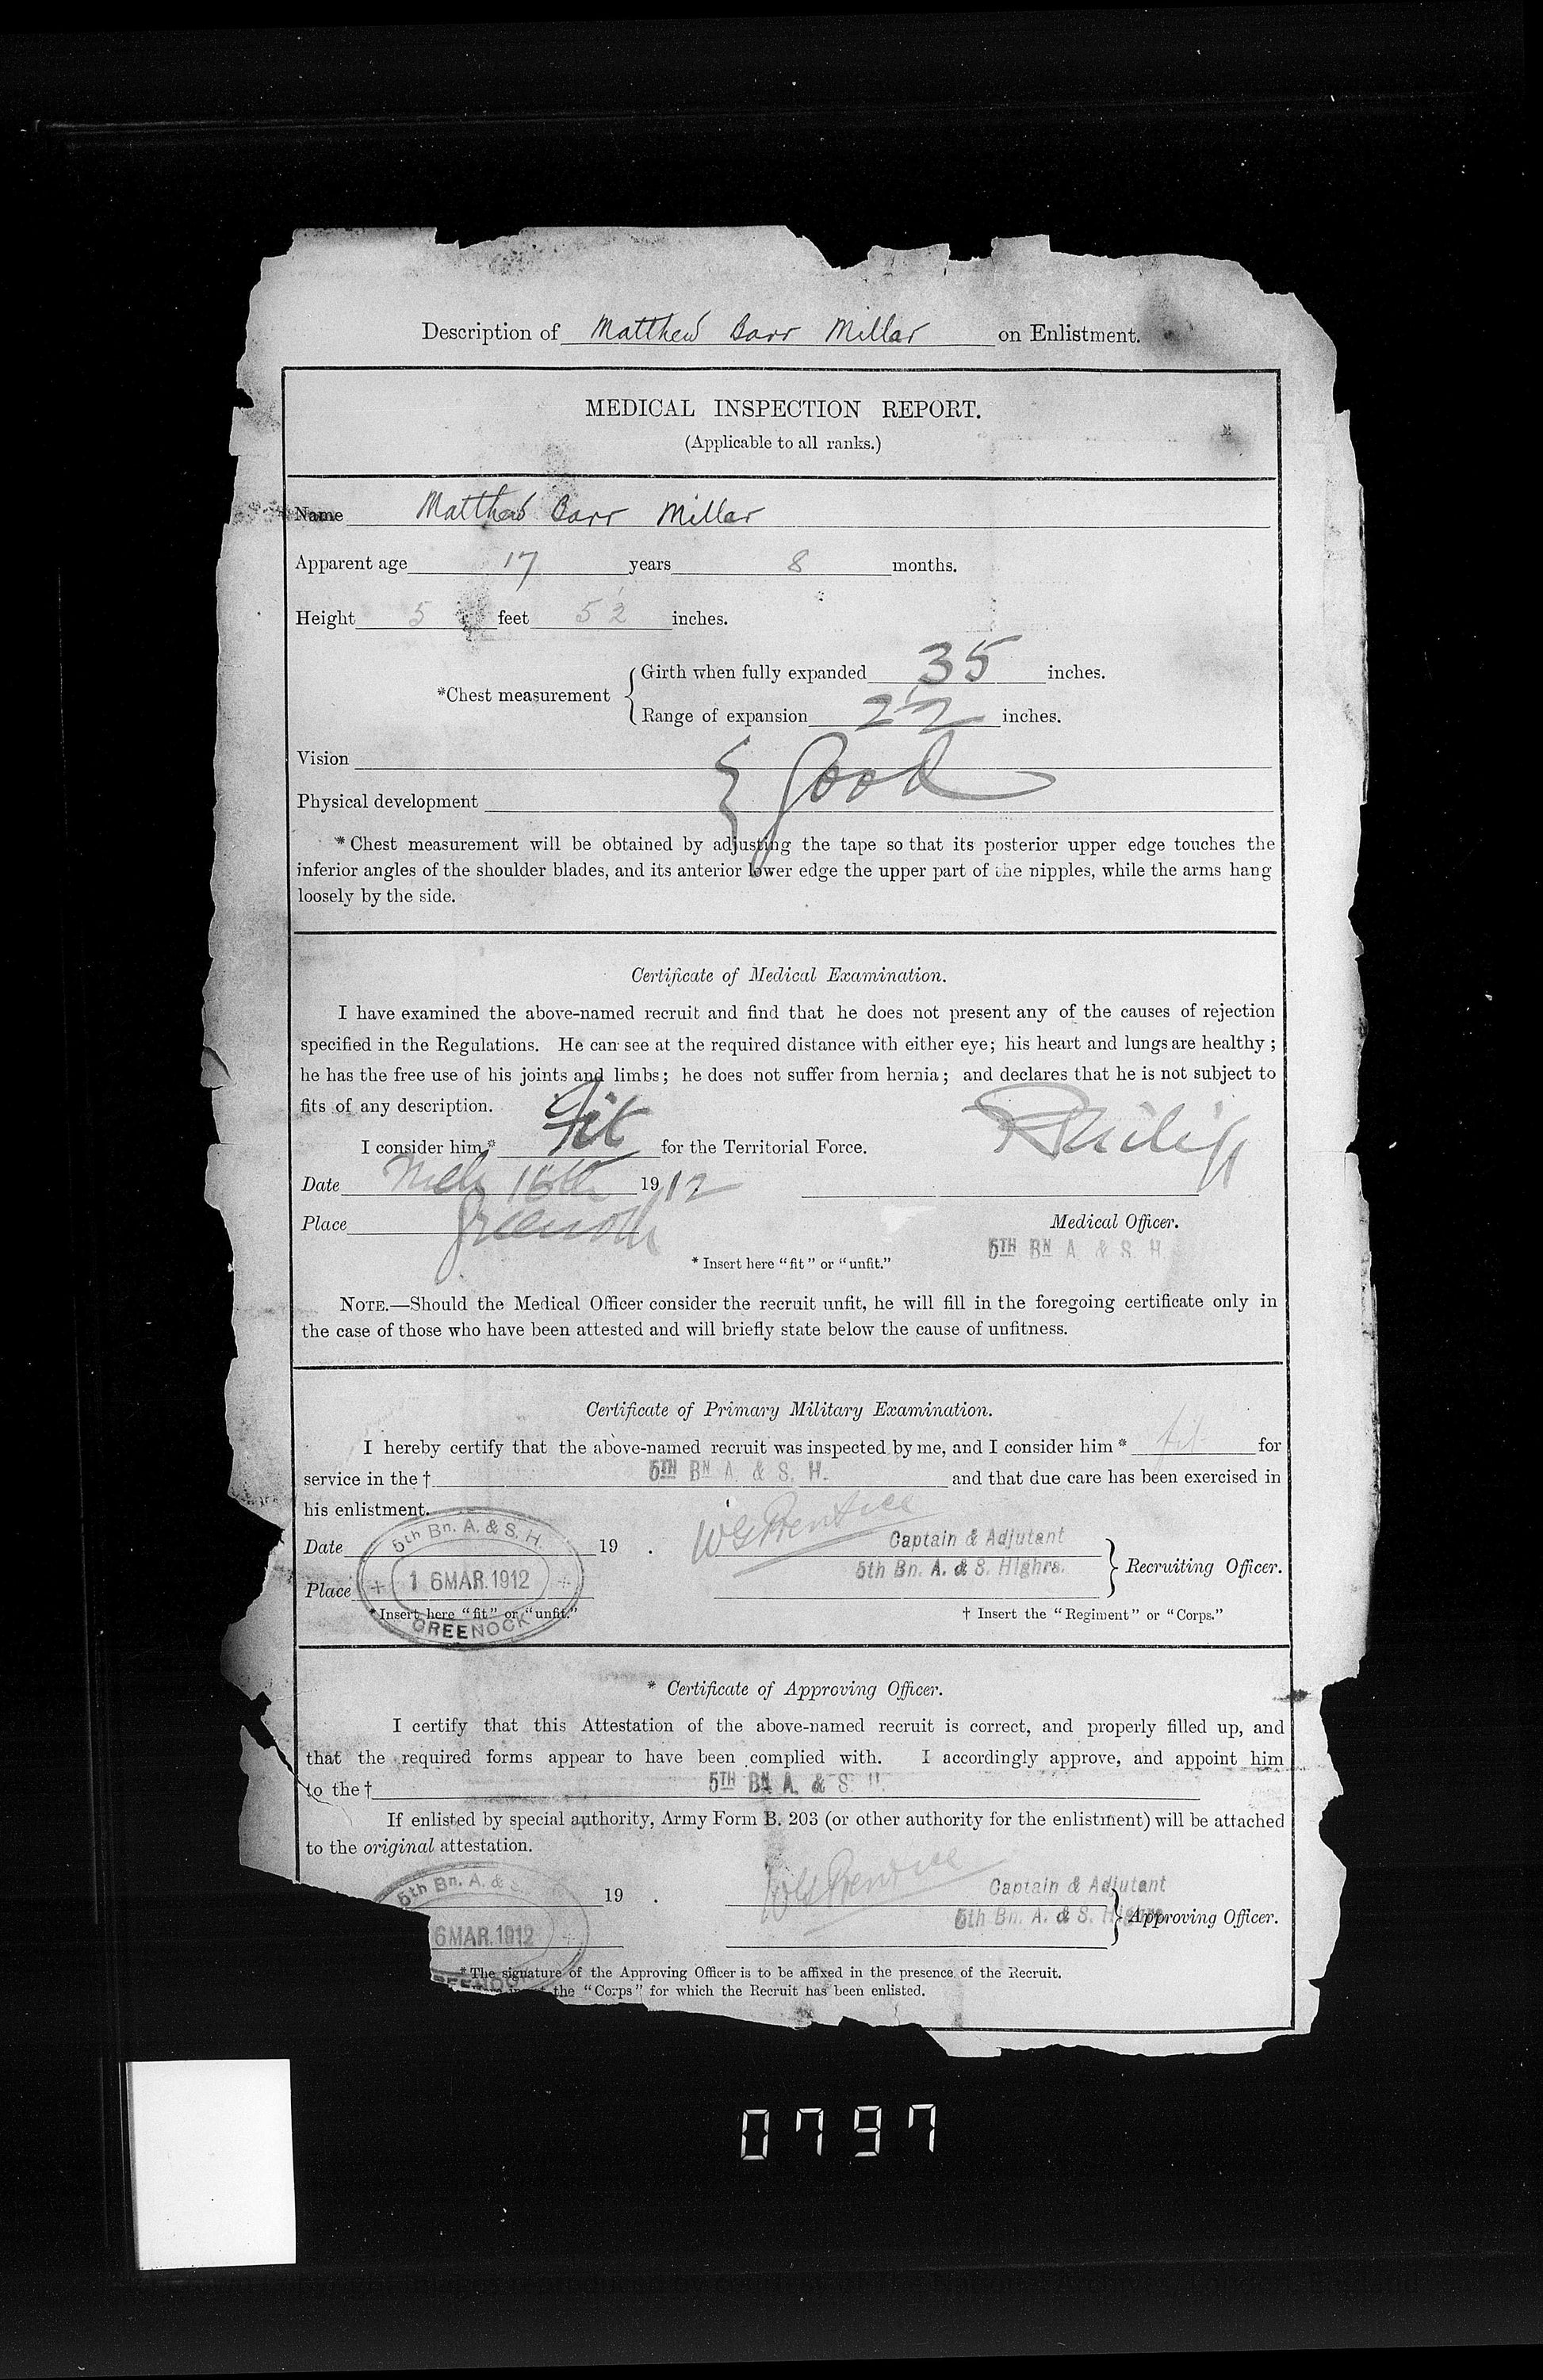 Description of Matthew Barr Millar on Enlistment.
MEDICAL INSPECTION REPORT.
(Applicable to all ranks.)
Name Matthew Barr Millar
Apparent age 17 years 8 months.
Height 5 feet 5½ inches.
*Chest measurement { Girth when fully expanded 35 inches.
Range of expansion 2½ inches.
Vision
Physical development } Good
* Chest measurement will be obtained by adjusting the tape so that its posterior upper edge touches the
inferior angles of the shoulder blades, and its anterior lower edge the upper part of the nipples, while the arms hang
loosely by the side.
Certificate of Medical Examination.
I have examined the above-named recruit and find that he does not present any of the causes of rejection
specified in the Regulations. He can see at the required distance with either eye; his heart and lungs are healthy;
he has the free use of his joints and limbs; he does not suffer from hernia; and declares that he is not subject to
fits of any description.
I consider him* Fit for the Territorial Force.
Date Mch 16th 1912
Place Greenock
Medical Officer.
5TH BN A. & S. H.
* Insert here "fit" or "unfit."
NOTE.—Should the Medical Officer consider the recruit unfit, he will fill in the foregoing certificate only in
the case of those who have been attested and will briefly state below the cause of unfitness.
Certificate of Primary Military Examination.
I hereby certify that the above-named recruit was inspected by me, and I consider him * fit for
service in the † 5TH BN A. & S. H. and that due care has been exercised in
his enlistment.
5th Bn. A. & S. H.
Date 19 . W G Prentice Captain & Adjutant
16 MAR. 1912 5th Bn. A. & S. Highrs. } Recruiting Officer.
Place
*Insert here "fit" or "unfit." † Insert the "Regiment" or "Corps."
GREENOCK
* Certificate of Approving Officer.
I certify that this Attestation of the above-named recruit is correct, and properly filled up, and
that the required forms appear to have been complied with. I accordingly approve, and appoint him
to the † 5TH BN A. & S. H.
If enlisted by special authority, Army Form B. 203 (or other authority for the enlistment) will be attached
to the original attestation.
5th Bn. A. & S.
19 . W G Prentice Captain & Adjutant
6 MAR. 1912 5th Bn. A. & S. Highrs. } Approving Officer.
* The signature of the Approving Officer is to be affixed in the presence of the Recruit.
the "Corps" for which the Recruit has been enlisted.
0797